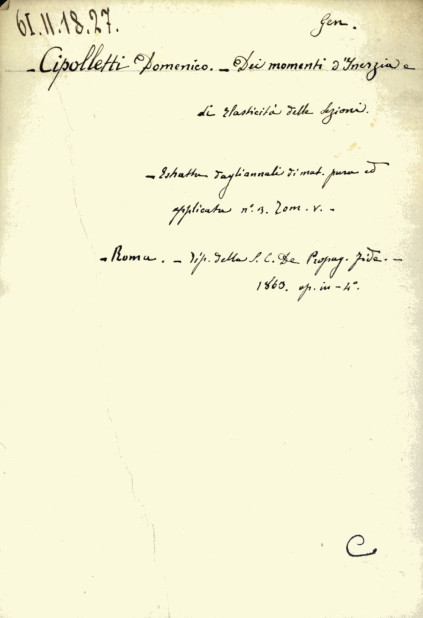 61.II.18.27.
Gen.
- Cipolletti Domenico. - Dei momenti d'Inerzia e
di Elasticità delle Sezioni.
- Estratto dagli annali di mat. pura ed
applicata n.° 3. Tom. V. -
- Roma. - Tip. della S. C. De Propag. Fide. -
1863. op. in-4°.
C